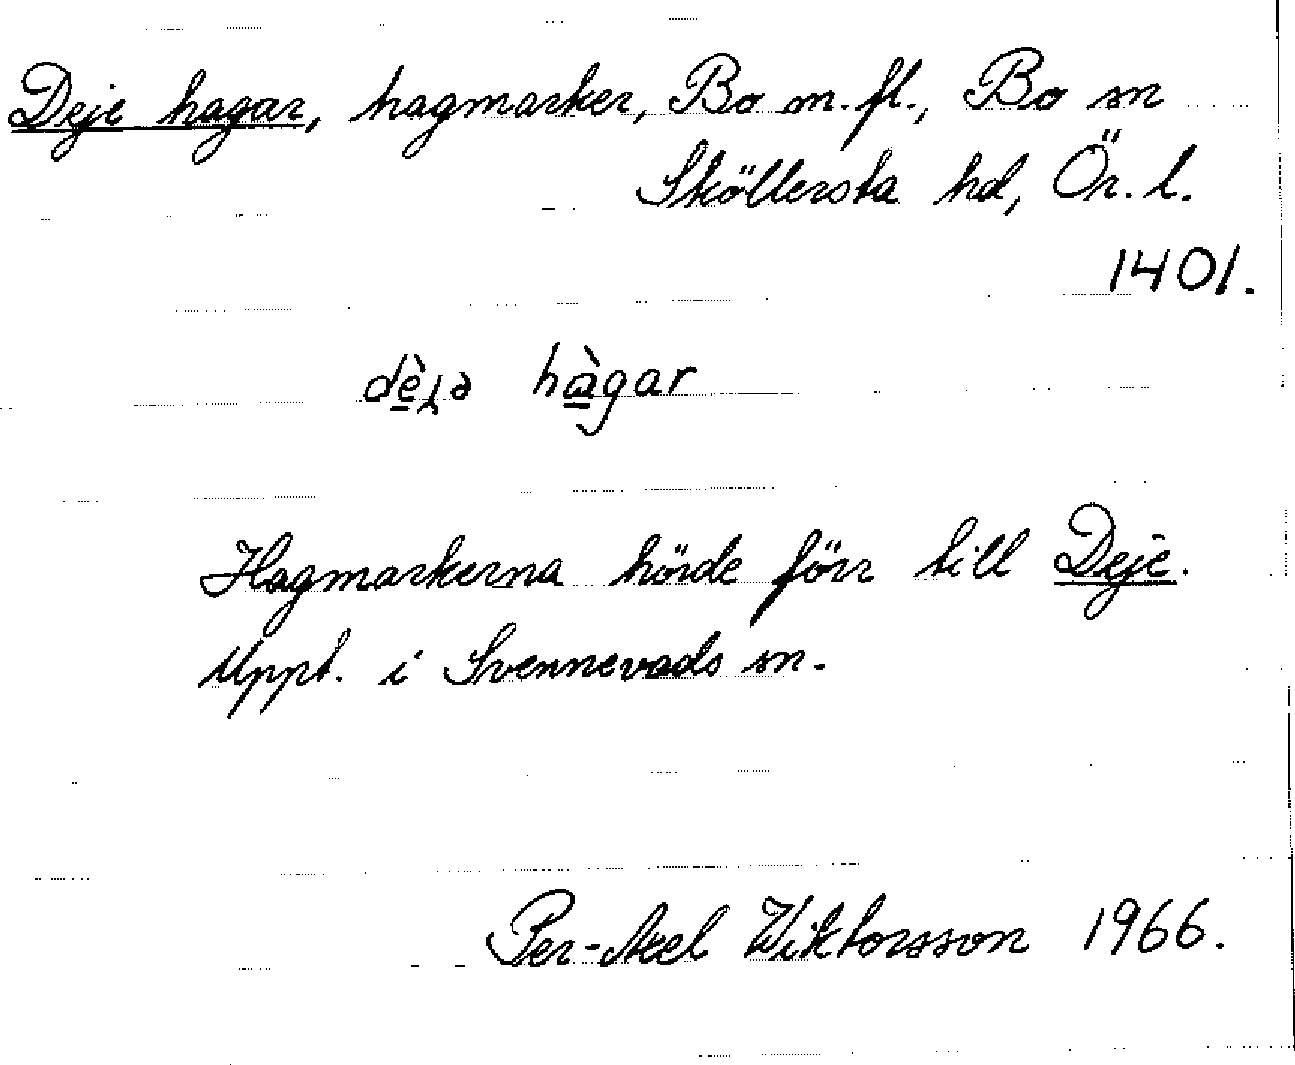 Deje hagar, hagmarker, Bo m.fl., Bo sn
Sköllersta hd, Ör. l.
1401.
dè̱ȷə hà̱gar
Hagmarkerna hörde förr till Deje.
Uppt. i Svennevads sn.
Per-Axel Wiktorsson 1966.